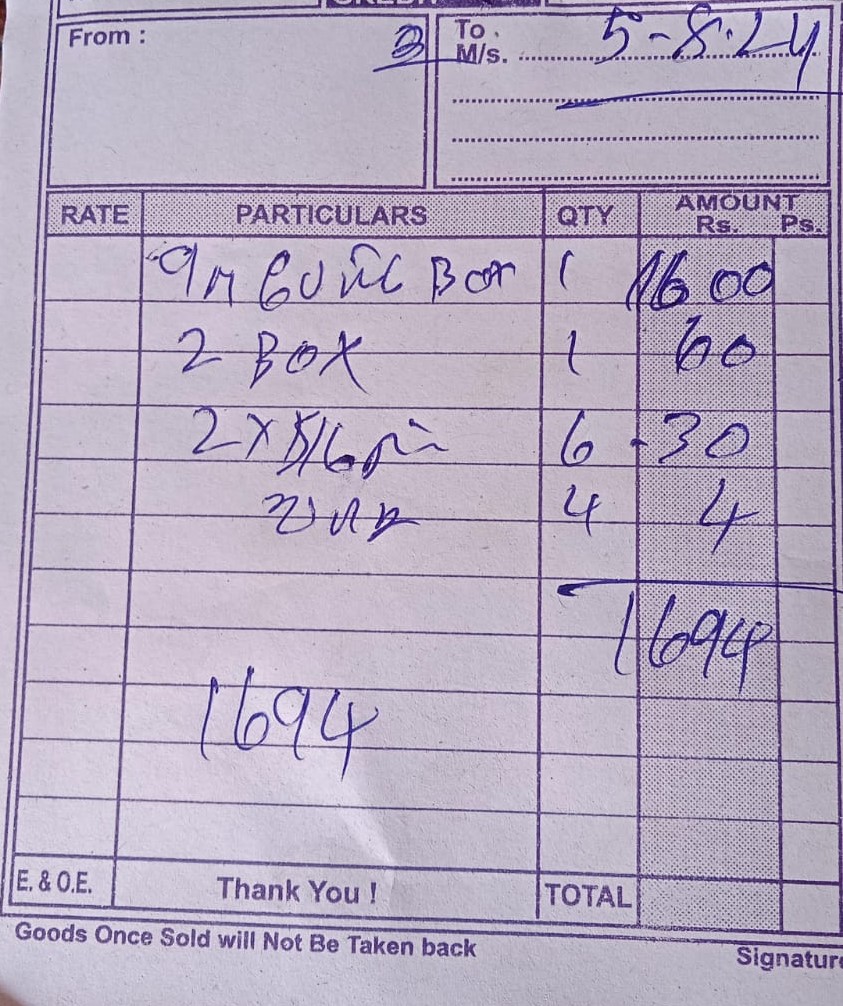 From : 3
To .
M/s. 5-8-24
RATE PARTICULARS QTY AMOUNT
Rs. Ps.
9M Box 1 1600
2 BOX 1 60
2 X 5/6 6 - 30
4 4
1694
1694
E. & O.E. Thank You ! TOTAL
Goods Once Sold will Not Be Taken back
Signature